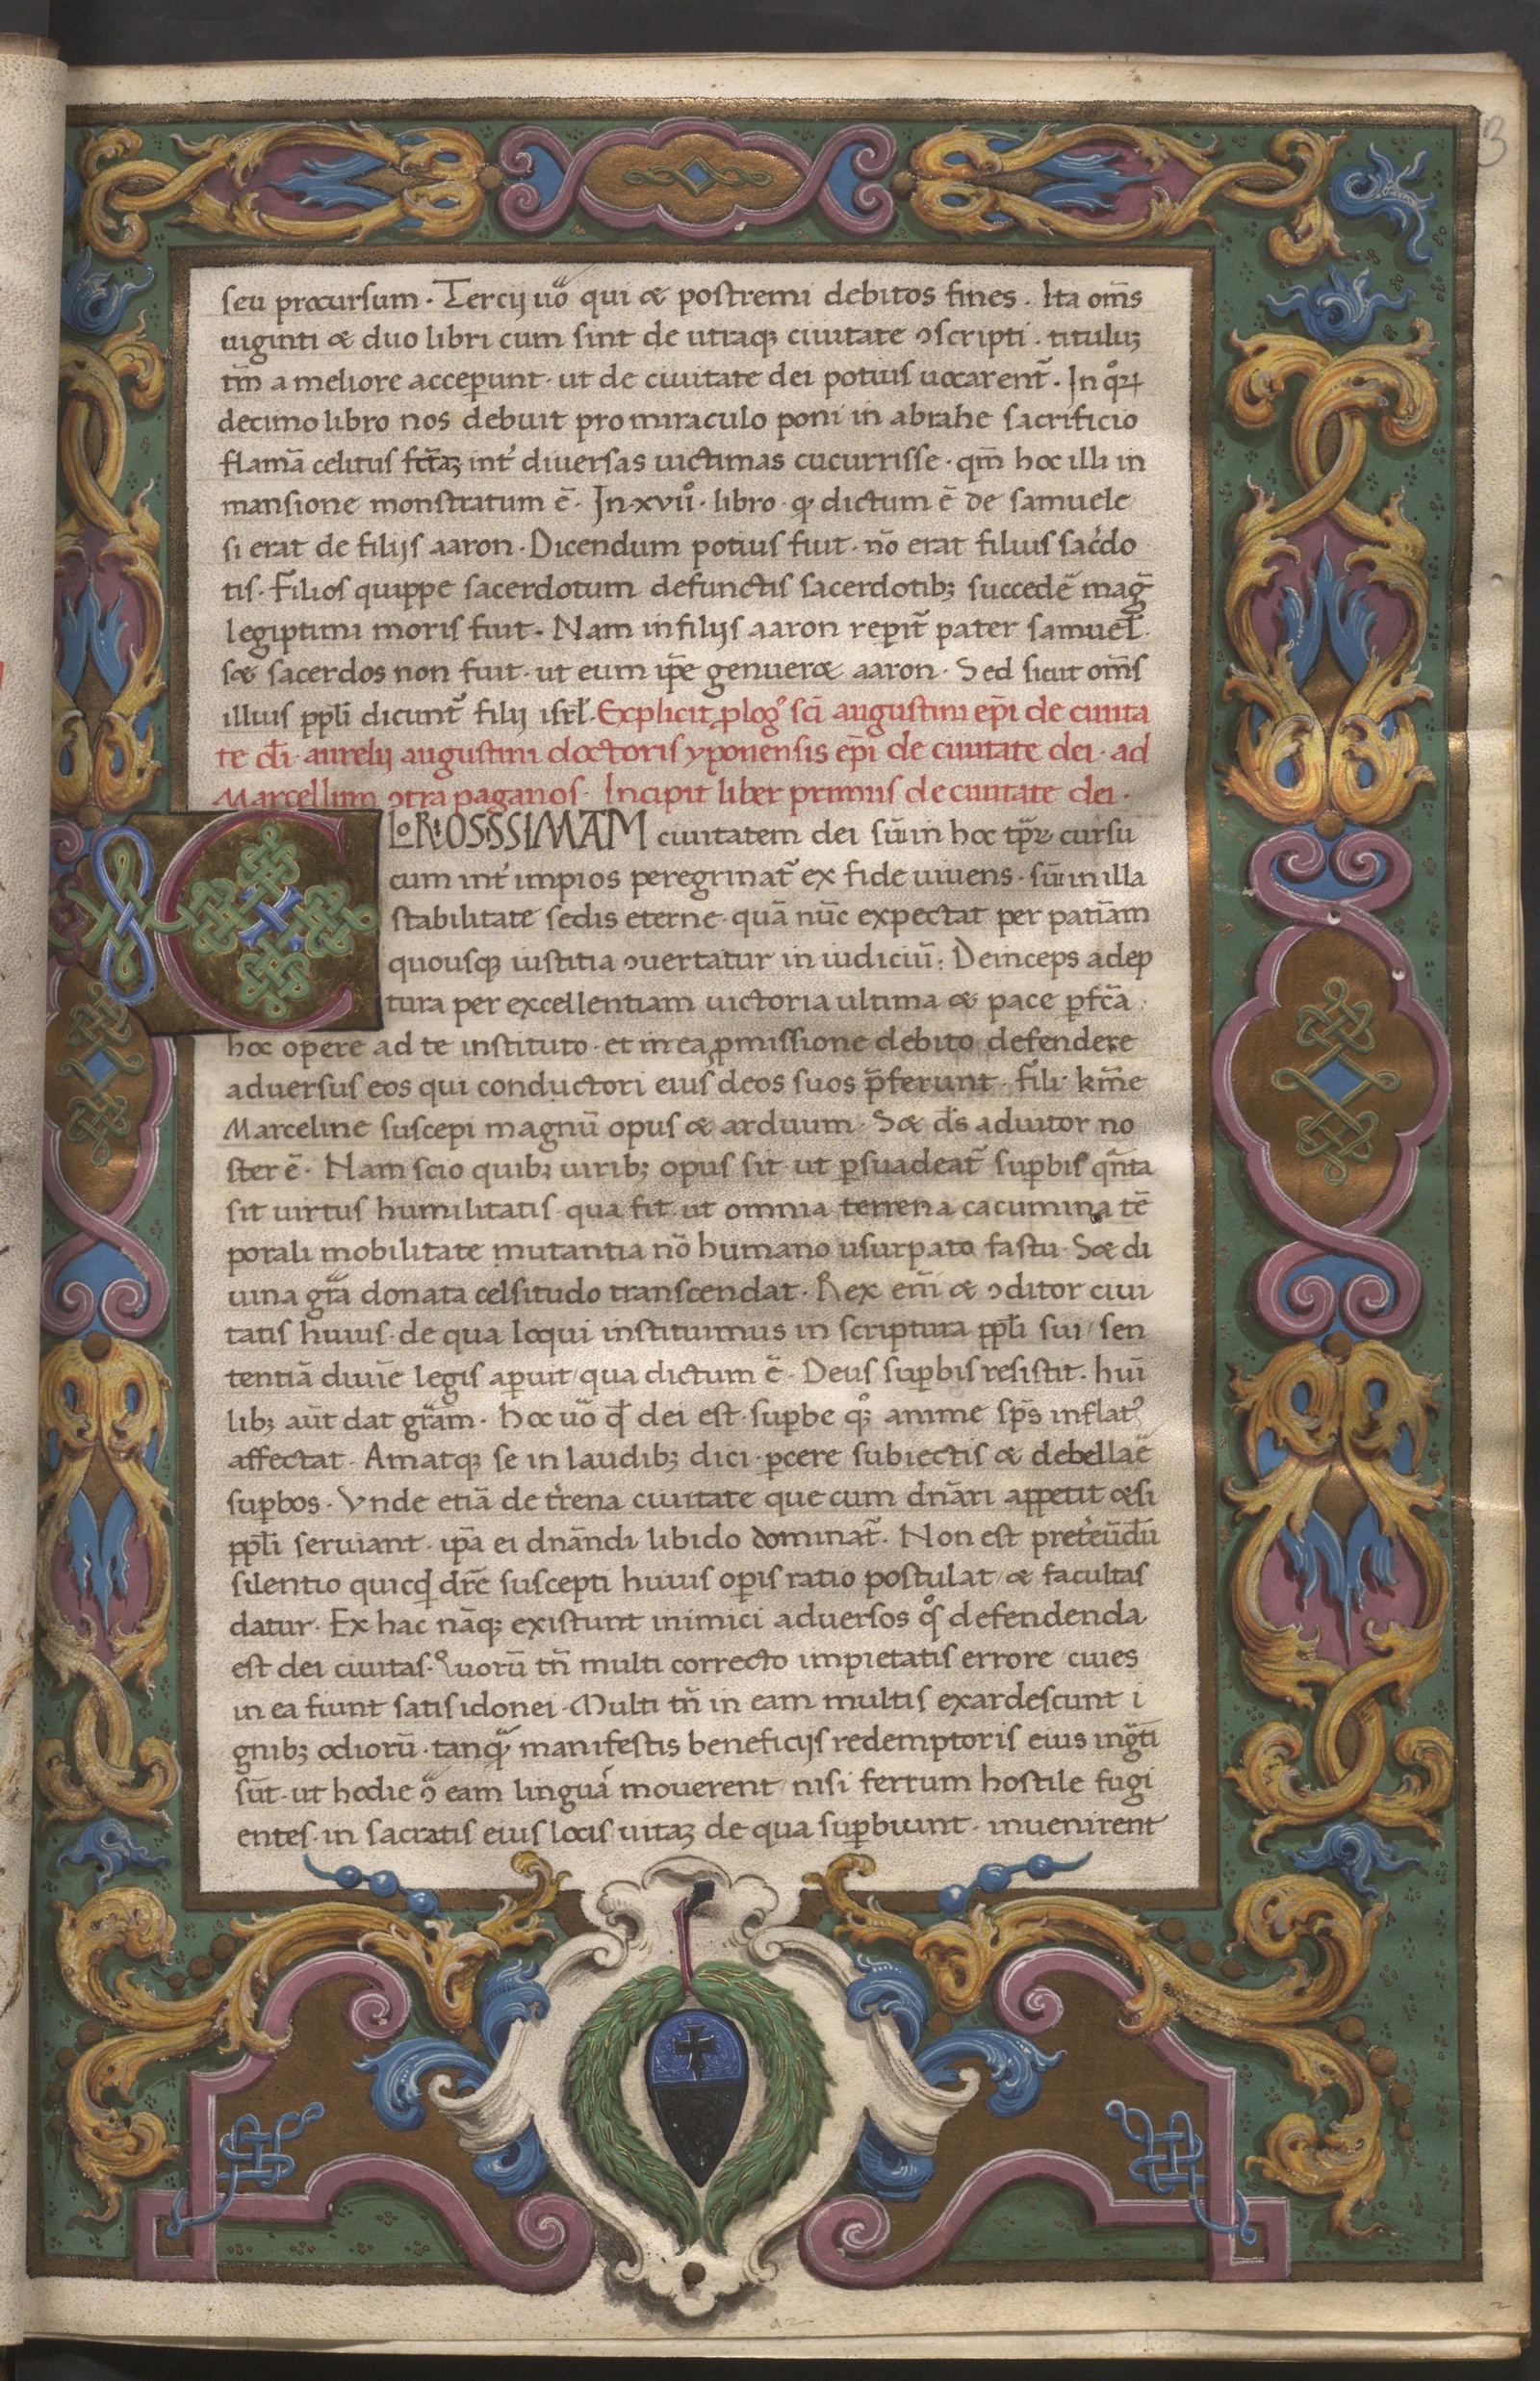 3
seu procursum · Tercij uõ qui & postremi debitos fines · Ita om̃s
uiginti & duo libri cum sint de utraqꝫ ciuitate ꝯscripti · tituluꝫ
tm̃ a meliore acceperunt · ut de ciuitate dei potius uocarent᷑ · In qͦꝝ
decimo libro nos debuit pro miraculo poni in abrahe sacrificio
flamã celitus fct̃aꝫ int᷑ diuersas uictimas cucurrisse · qm̃ hoc illi in
mansione monstratum ẽ · In · xvııͦ · libro · ꝙ dictum ẽ de samuele
si erat de filijs aaron · Dicendum potius fuit · nõ erat filius sac᷑do
tis · Filios quippe sacerdotum defunctis sacerdotibꝫ succedẽ mag̃
legiptimi moris fuit · Nam in filijs aaron reperit᷑ pater samuel̃ ·
s& sacerdos non fuit · ut eum ip̃e genuer& aaron · Sed sicut om̃s
illius ppl̃i dicunt᷑ filij isrl̃ · Explicit ꝓlogꝰ sc̃i augustini ep̃i de ciuita
te dĩ · aurelij augustini doctoris yponensis ep̃i de ciuitate dei · ad
Marcellum ꝯtra paganos · Incipit liber primus de ciuitate dei ·
GLoRIOSISSIMAM ciuitatem dei siũ in hoc tp̃ꝝ cursu
cum int᷑ impios peregrinat᷑ ex fide uiuens · siũ in illa
stabilitate sedis eterne · quã nũc expectat per patiãm
quousqꝫ iustitia ꝯuertatur in iudiciũ : Deinceps adep
tura per excellentiam uictoria ultima & pace ꝑfc̃a ·
hoc opere ad te instituto · et in ea ꝓmissione debito defendere
aduersus eos qui conductori eius deos suos p̃ferunt · fili · km̃e
Marceline suscepi magnũ opus & arduum · S& d̃s adiutor no
ster ẽ · Nam scio quibꝫ uiribꝫ opus sit ut ꝑsuadeat᷑ suꝑbis qñta
sit uirtus humilitatis qua fit ut omnia terrena cacumina tẽ
porali mobilitate mutantia nõ humano usurpato fastu · S& di
uina gr̃a donata celsitudo transcendat · Rex em̃ & ꝯditor ciui
tatis huius · de qua loqui instituimus in scriptura ppl̃i sui / sen
tentiã diuiẽ legis aperuit / qua dictum ẽ · Deus suꝑbis resistit · hui᷑
libꝫ aũt dat gr̃am · hoc uõ qd̃ dei est · suꝑbe qͦꝫ anime sp̃s inflatꝰ
affectat · Amatqꝫ se in laudibꝫ dici · ꝑcere subiectis & debellaẽ
suꝑbos · Vnde etiã de t᷑rena ciuitate que cum dñari appetit &si
ppl̃i seruiant · ip̃a ei dñandi libido dominat᷑ · Non est pret᷑eũdũ
silentio quicqd̃ dic̃e suscepti huius oꝑis ratio postulat / & facultas
datur · Ex hac nãqꝫ existunt inimici aduersos qͦs defendenda
est dei ciuitas · Quorũ tñ multi correcto impietatis errore / ciues
in ea fiunt satis idonei · Multi tñ in eam multis exardescunt i
gnibꝫ odiorũ · tanqͣꝫ manifestis beneficijs redemptoris eius ingͣti
sũt · ut hodie ꝯ᷑ eam linguã mouerent / nisi ferrum hostile fugi
entes · in sacratis eius locis uitaꝫ de qua suꝑbiunt · inuenirent